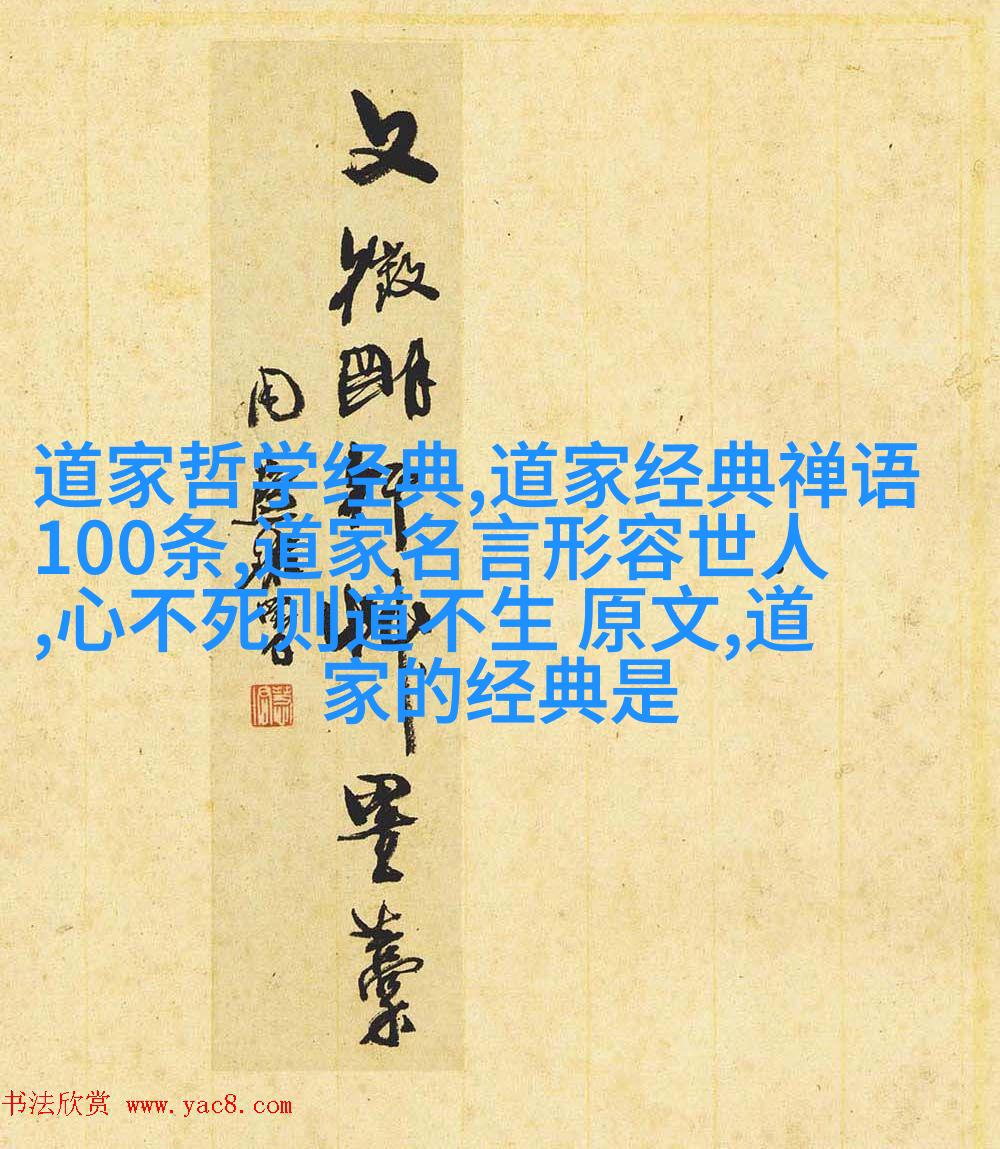 文徵明
墨藁
道家哲学经典,道家经典禅语
100条,道家名言形容世人
,心不死则道不生 原文,道
家的经典是
书法欣赏 www.yac8.com